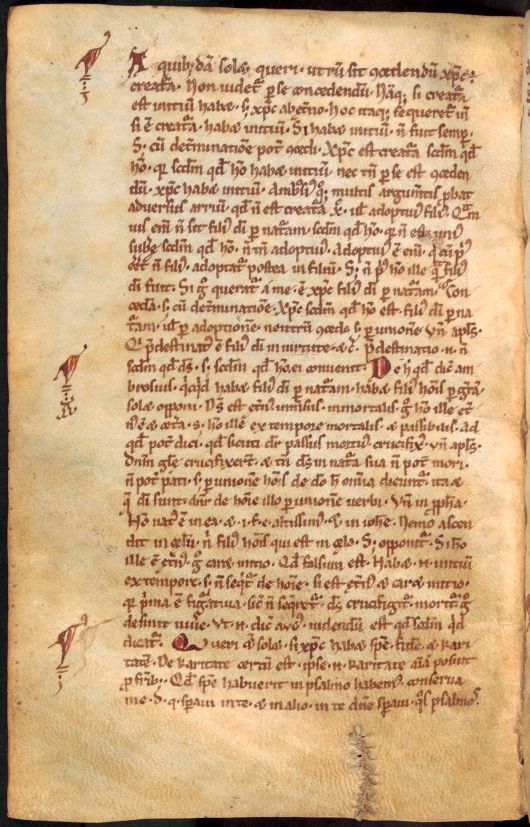 A quib; dā solet queri · utrū sit ꝯcedendū xp̄c
creatr̄a · Non uidet᷑ ꝑ se concedendū · Nāq; si creatr̄a
est initiū habet · s; xp̄c ab et̄no · hoc itaq;
si ē creatr̄a · habet initiū · Si habet initiū · n̄ fuit semꝑ ·
S; cū det̄minatione pot̄ ꝯcedi · xp̄c est creatr̄a scd̄m qd̄
hō · qr scd̄m qd̄ hō habet initiū · nec tn̄ ꝑ se est ꝯceden
dū · xp̄c habet initiū · Ambꝛosiꝰ q; multis argum̄tis ꝓbat
aduersus arriū · qd̄ n̄ est creatr̄a xp̄c · uł adoptiuꝰ filiꝰ · Quā
uis eni n̄ sit filiꝰ di ꝑ natr̄am · scd̄m qd̄ hō · qr n̄ est uniꝰ
substē scd̄m qd̄ hō · n̄ tn̄ adoptiuꝰ · Adoptiuꝰ ē eni · q̄ cū pꝰ
eēt n̄ filiꝰ · adoptat᷑ postea in filiū · S; n̄ pꝰ hō ille q̄ filiꝰ
di fuit · Si g̊ querat᷑ a me · ē xp̄c filiꝰ di ꝑ natr̄am · Con
ceda · s; cū det̄minatione · xp̄c scd̄m qd̄ hō est · filiꝰ di ꝑ na
tr̄am · uł ꝑ adoptionē · neutrū ꝯcedo · s; ꝑ unionē · Vn̄ apls̄ ·
Q' p̄destinatꝰ ē filiꝰ di in uirtute · p̄destinatio · n · n̄
scd̄m qd̄ ds̄ · s; scd̄m qd̄ hō ei conuenit · De h qd̄ dic̄ am
brosius · q̇cq̇d habet filiꝰ di ꝑ natr̄am · habet filiꝰ hoīs ꝑ gr̄am ·
solet opponi · Ds̄ est et̄nꝰ inmortalis · g̊ hō ille et̄
nꝰ ē · s; hō ille ē ex tempore mortalis · et passibilis · Ad
qd̄ pot̄ dici · qd̄ sicuti dr̄ passus mortuꝰ crucifixꝰ · vn̄ apls̄ ·
Dn̄m gle crucifixer̄t · et tn̄ ds̄ in natr̄a sua n̄ pot̄ mori ·
n̄ pot̄ pati · s; ꝑ unionē hoīs de dō h̄ omīa dicunt᷑ · ita et
q̄ di sunt · dn̄r de hoīe illo ꝑ unionē uerbi · Vn̄ in ꝓpha ·
Hō natꝰ ē in ea · et · i · f · e · altissimꝰ · et in iohe · Nemo ascen
dit in celū · n̄ filiꝰ hoīs qui est in celo · S; opponit᷑ · Si hō
ille ē et̄nꝰ · g̊ caret initio · Qd̄ falsum est · habet · n · initiū
ex tempore · s; n̄ seqt᷑ de hoīe · si est et̄nꝰ et caret initio ·
qr p̄ma ē figatiua · sic n̄ seqret᷑ · ds̄ crucifigit᷑ · morit᷑ · g̊
definit uiuē · uidendū est qd̄ scd̄m q̇d
dicat᷑ · Queri et solet · si xp̄c habet spē · fidē · et kari
tatē · De karitate certū est · ipse · n · karitate aīam posuit
ꝓ frīb; · Qd̄ spē habuerit in psalmo habem̄ · conserua
me · d · q · speraui in te · et in alio · in te dn̄e speraui · psalmo